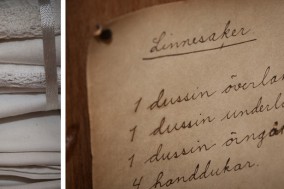 Linnesaker
1 dussin överla
1 dussin underl
1 dussin örngå
4 handdukar.